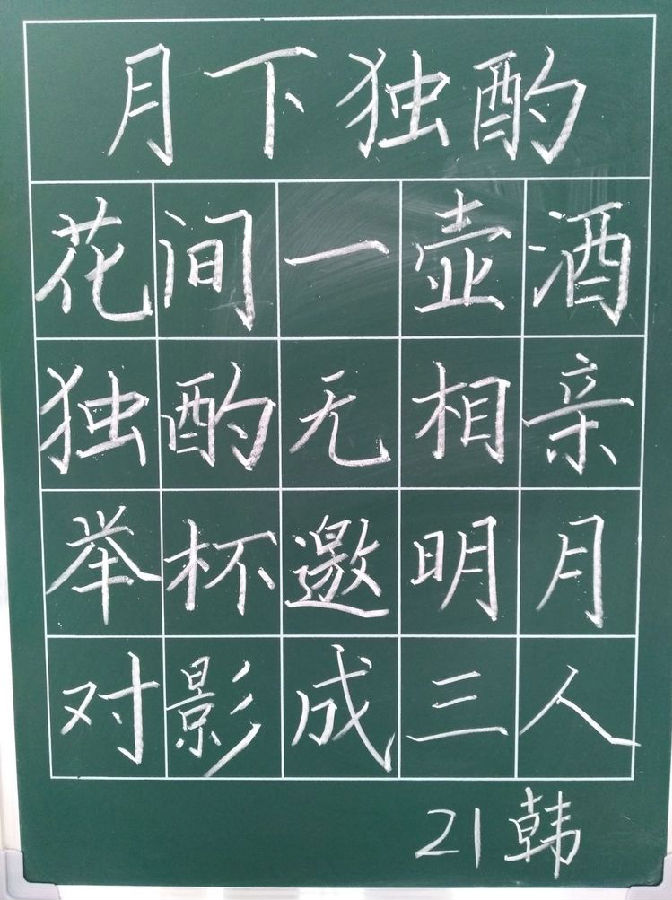 月下独酌
花间一壶酒
独酌无相亲
举杯邀明月
对影成三人
21韩